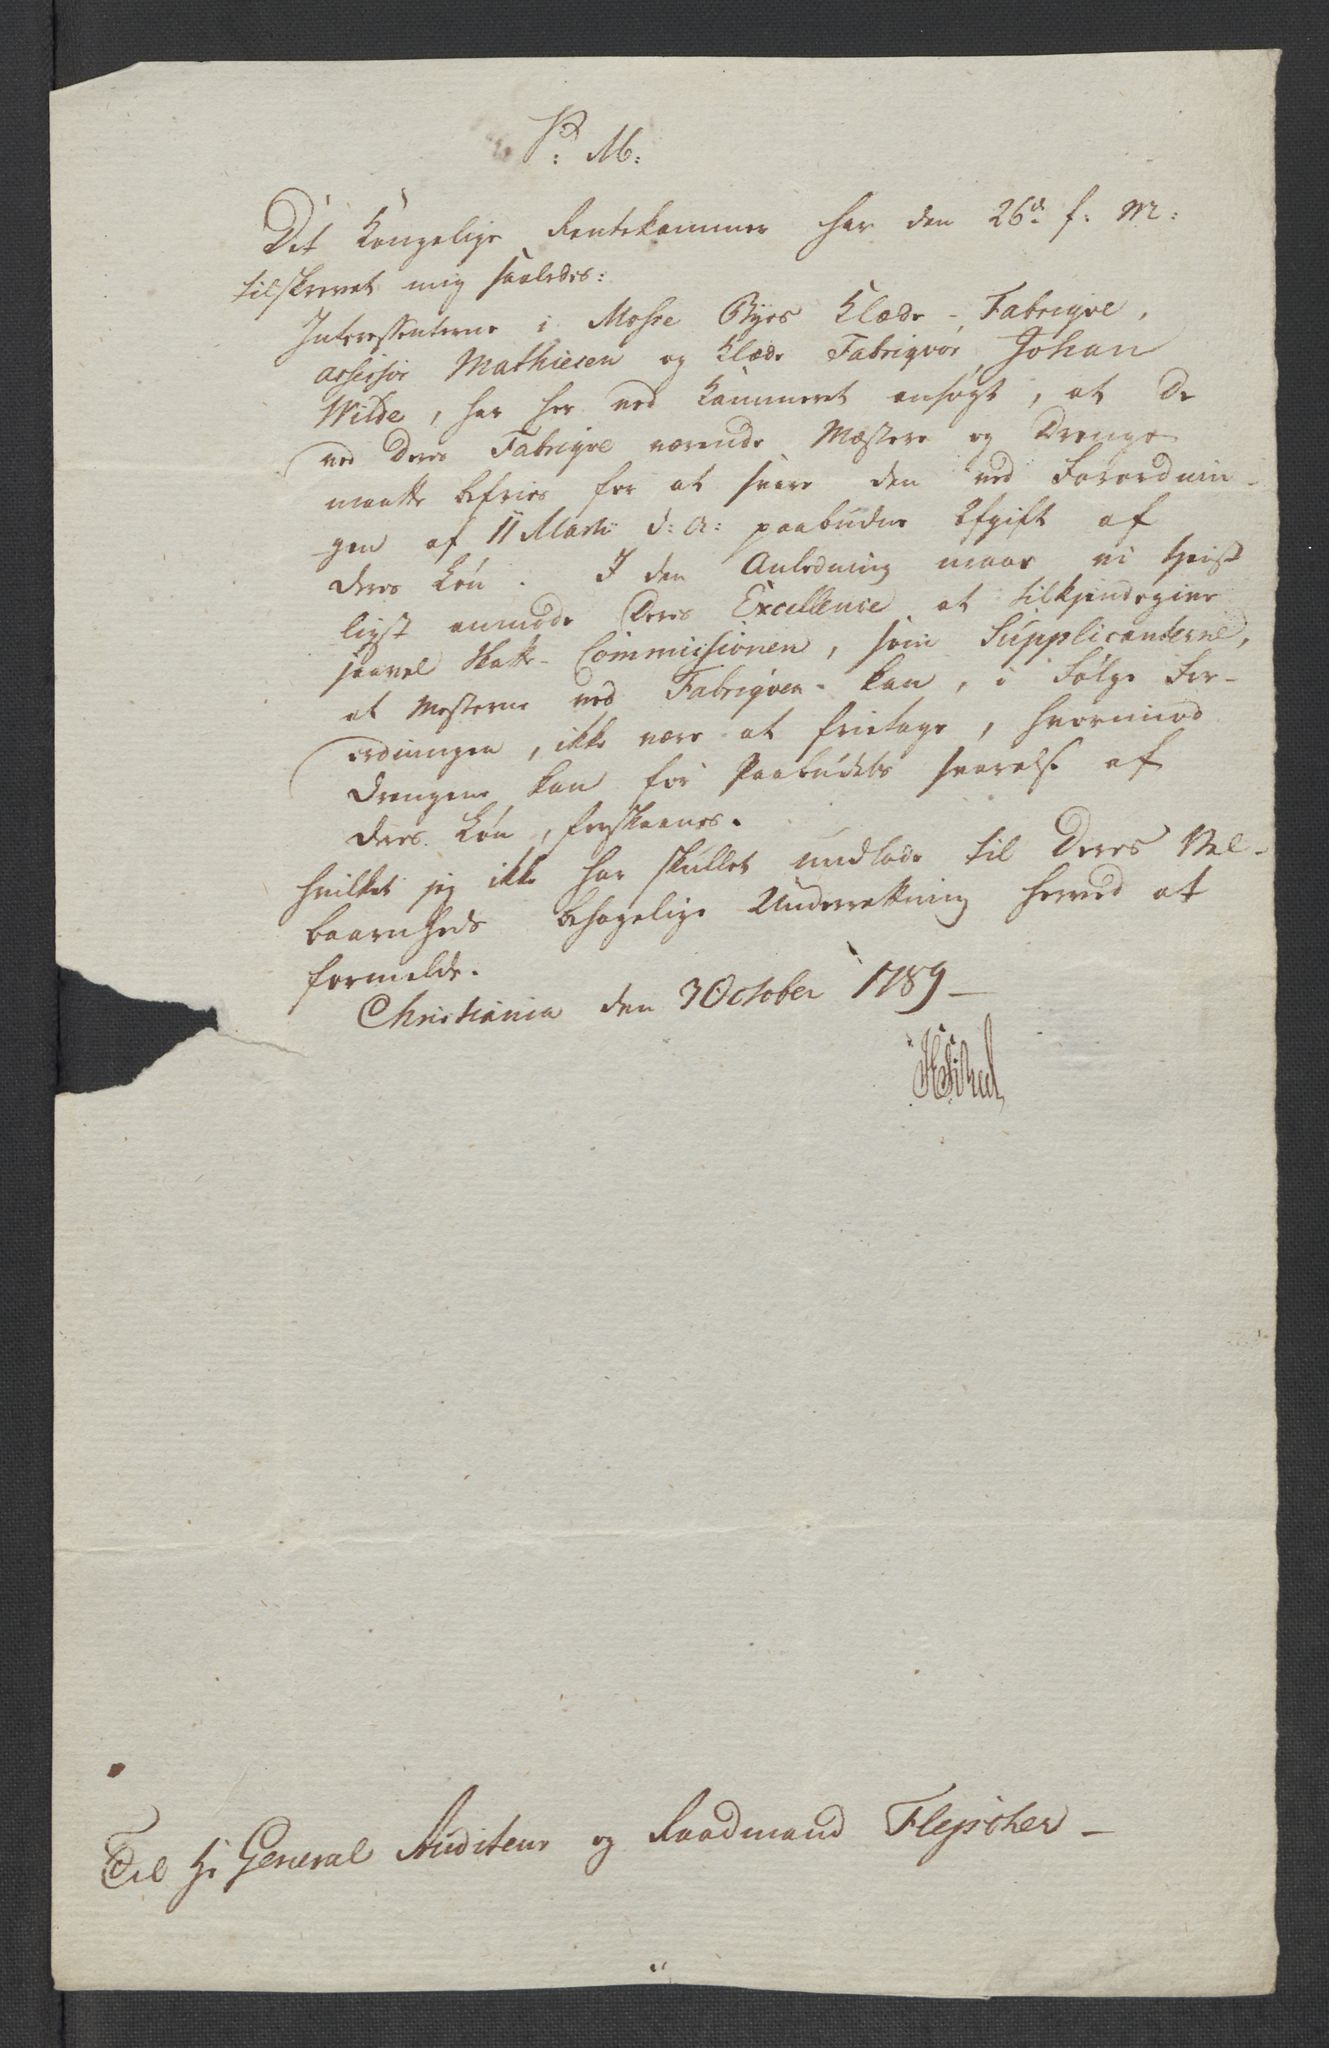 P: M:
Det Kongelige Rentekammer har den 26de f: M:
tilskrevet mig saaledes:
Interessenterne i Mosse Byes Klæde-Fabriqve,
Assessor Mathiesen og Klæde Fabriqvør Johan
Wilde, har her ved Kammeret ansøgt, at de
ved Deres Fabriqve værende Mæstere og Drenge
maatte befries for at svare den ved Forordnin-
gen af 11 Martii d: A: paabudne Afgift af
deres Løn. I den Anledning maae vi tienst
ligst anmode Deres Excellence at tilkjendegive
saavel Skatte-Commissionen, som Supplicanterne,
at Mesterne ved Fabriqven kan, i Følge For-
ordningen, ikke være at fritage, hvorimod
Drengene kan for Paabudets Svarelse af
deres Løn, forskaanes.
Hvilket jeg ikke har skullet undlade til Deres Vel-
baarenheds behagelige Underretning herved at
formelde.
Christiania den 3 October 1789
Til Hr General Auditeur og Raadmand Flejscher